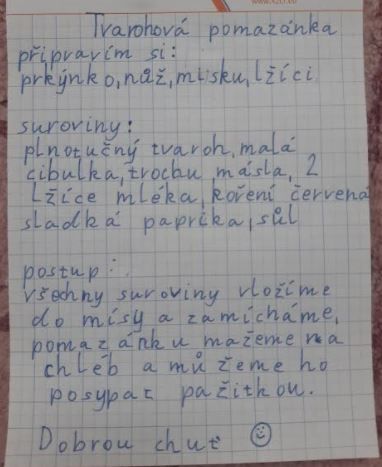 Tvarohová pomazánka
připravím si:
prkýnko, nůž, misku, lžíci
suroviny:
plnotučný tvaroh, malá
cibulka, trochu másla, 2
lžíce mléka, koření červená
sladká paprika, sůl
postup:
všechny suroviny vložíme
do mísy a zamícháme,
pomazánku mažeme na
chléb a můžeme ho
posypat pažitkou.
Dobrou chuť ☺